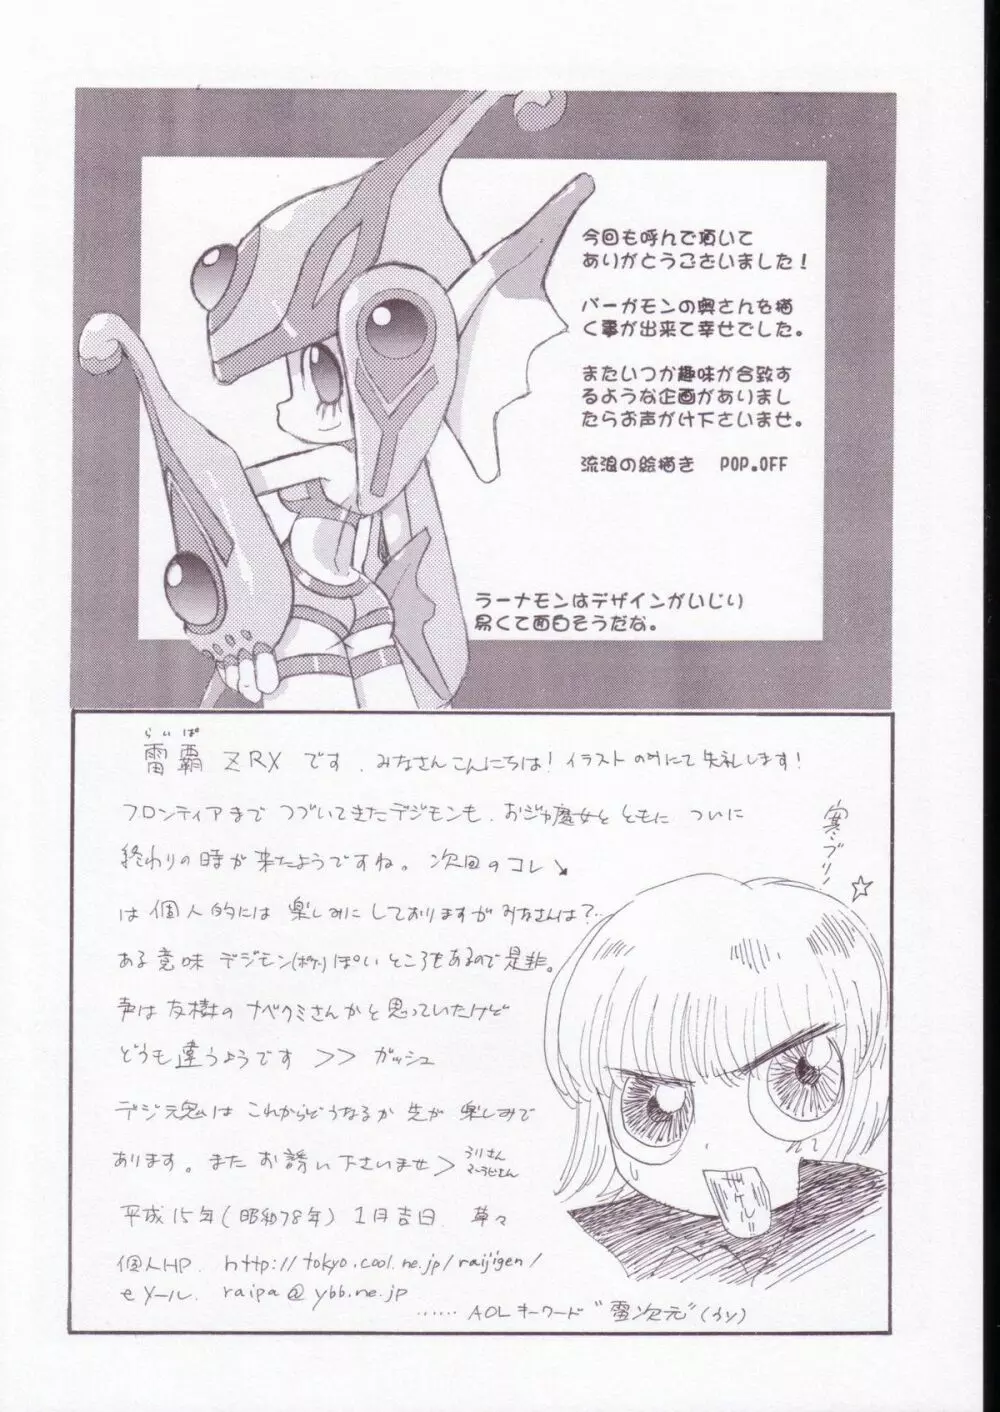 今回も呼んで頂いて
ありがとうございました！
バーガモンの奥さんを描
く事が出来て幸せでした。
またいつか趣味が合致す
るような企画がありまし
たらお声がけ下さいませ。
流浪の絵描き　POP.OFF
ラーナモンはデザインがいじり
易くて面白そうだな。
らいぱ
雷覇 ZRX です．みなさんこんにちは！イラストの外にて失礼します！
フロンティアまで つづいてきたデジモンも、おジャ魔女と ともに ついに
終わりの時が来たようですね。次回のコレ↘
は個人的には 楽しみに しておりますが みなさんは？…
ある意味 デジモン(ポケ)ぽい ところもあるので是非。
声は友樹の ナベクミさんかと思っていたけど
どうも違うようです >> ガッシュ
デジ魂は これからどうなるか 先が 楽しみで
あります。また お誘い下さいませ>
平成15年(昭和78年) 1月吉日． 草々
個人HP． http://tokyo.cool.ne.jp/raijigen/
eメール． raipa@ybb.ne.jp
…… AOLキーワード "雷次元" (うソ)
寒ブリ!!☆
ザケレ!!